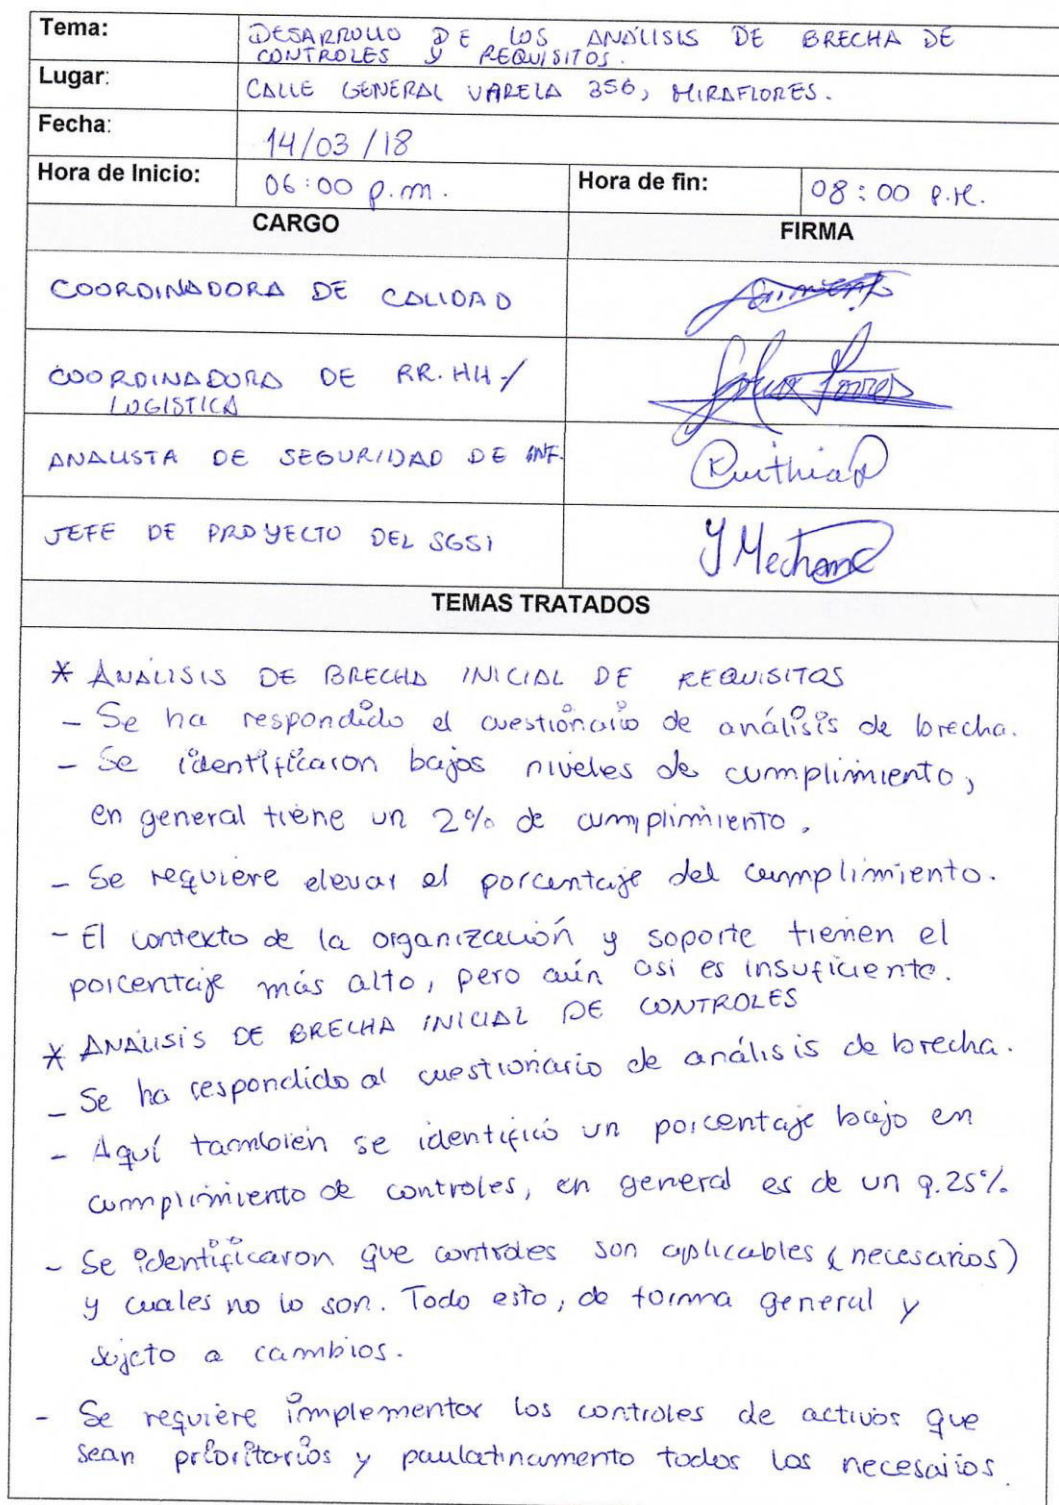 Tema: DESARROLLO DE LOS ANÁLISIS DE BRECHA DE
CONTROLES Y REQUISITOS.
Lugar: CALLE GENERAL VARELA 356, MIRAFLORES.
Fecha: 14/03/18
Hora de Inicio: 06:00 p.m. Hora de fin: 08:00 P.M.
CARGO FIRMA
COORDINADORA DE CALIDAD
COORDINADORA DE RR.HH /
LOGISTICA
ANALISTA DE SEGURIDAD DE INF.
JEFE DE PROYECTO DEL SGSI
TEMAS TRATADOS
* ANÁLISIS DE BRECHA INICIAL DE REQUISITOS
- Se ha respondido el cuestionario de análisis de brecha.
- Se identificaron bajos niveles de cumplimiento,
en general tiene un 2% de cumplimiento.
- Se requiere elevar el porcentaje del cumplimiento.
- El contexto de la organización y soporte tienen el
porcentaje más alto, pero aún asi es insuficiente.
* ANÁLISIS DE BRECHA INICIAL DE CONTROLES
- Se ha respondido al cuestionario de análisis de brecha.
- Aquí también se identificó un porcentaje bajo en
cumplimiento de controles, en general es de un 9.25%
- Se identificaron que controles son aplicables (necesarios)
y cuales no lo son. Todo esto, de forma general y
sujeto a cambios.
- Se requiere implementar los controles de activos que
sean prioritarios y paulatinamente todos los necesarios.